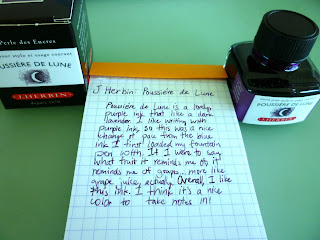 Perle des Encres
POUSSIÈRE DE LUNE
J.HERBIN
J Herbin Poussière de Lune
Poussière de Lune is a lovely
purple ink that like a dark
lavender. I like writing with
purple ink, so this was a nice
change of pace from the blue
ink I first loaded my fountain
pen with. If I were to say
what fruit it reminds me of, it
reminds me of grapes... more like
grape juice, actually. Overall, I like
this ink. I think it's a nice
color to take notes in!
POUSSIÈRE DE LUNE
J.HERBIN